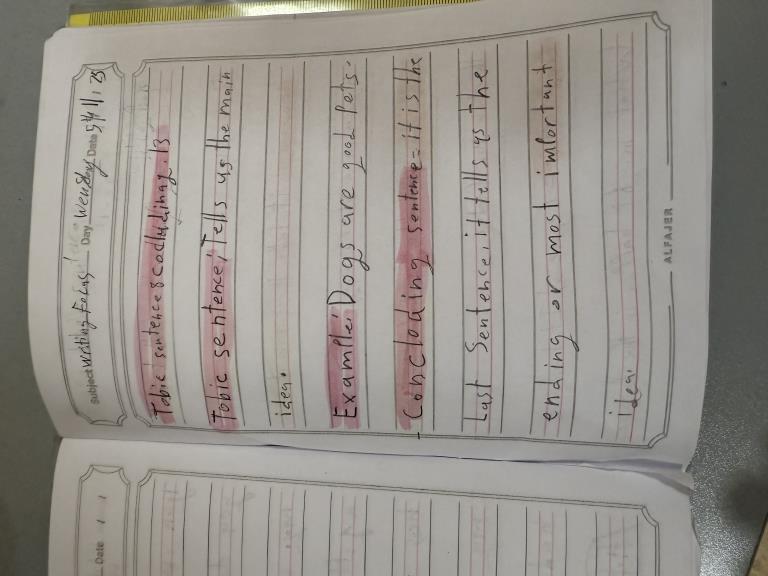 Subject Writing Focus Day Wensday Date 5/11/25
Tobic sentence & cocluding. 13
Tobic sentence; Tells us the main
idea.
Example: Dogs are good Pets.
- Concloding sentence= it is the
Last Sentence, it tells us the
ending or most imlortant
idea.
ALFAJER
Date / /